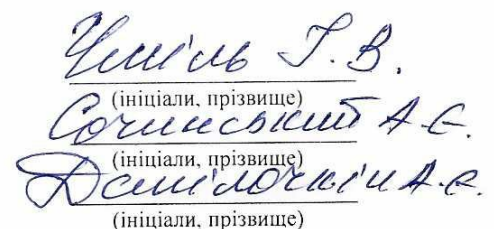 Чміль Т. В.
(ініціали, прізвище)
Сочинський А. Є.
(ініціали, прізвище)
Данілочкін А. Є.
(ініціали, прізвище)